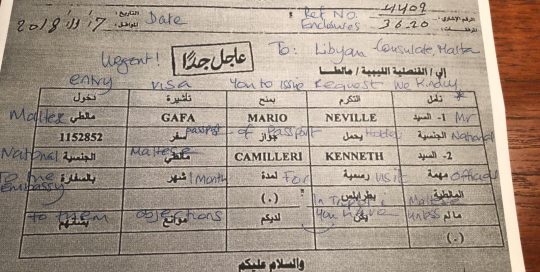 الرقم الإشاري: 4409 Ref No. Date التاريخ:
36.20 Enclosures الموافق: 2018
Urgent! عاجل جدًا To: Libyan Consulate, Malta
إلى / القنصلية الليبية / مالطا
entry visa you to issue request We kindly
نأمل التكرم بمنح تأشيرة دخول
1- السيد NEVILLE MARIO GAFA مالطي
Mr Maltese
الجنسية يحمل جواز سفر 1152852
National Holder of Passport
2- السيد KENNETH CAMILLERI مالطي الجنسية
Maltese National
مهمة رسمية لمدة شهر بالسفارة
Official visit For 1 Month To the Embassy
المالطية بطرابلس (.)
Maltese In Tripoli
ما لم يكن لديكم موانع بشأنهم
unless you have objections to them
(.)
والسلام عليكم